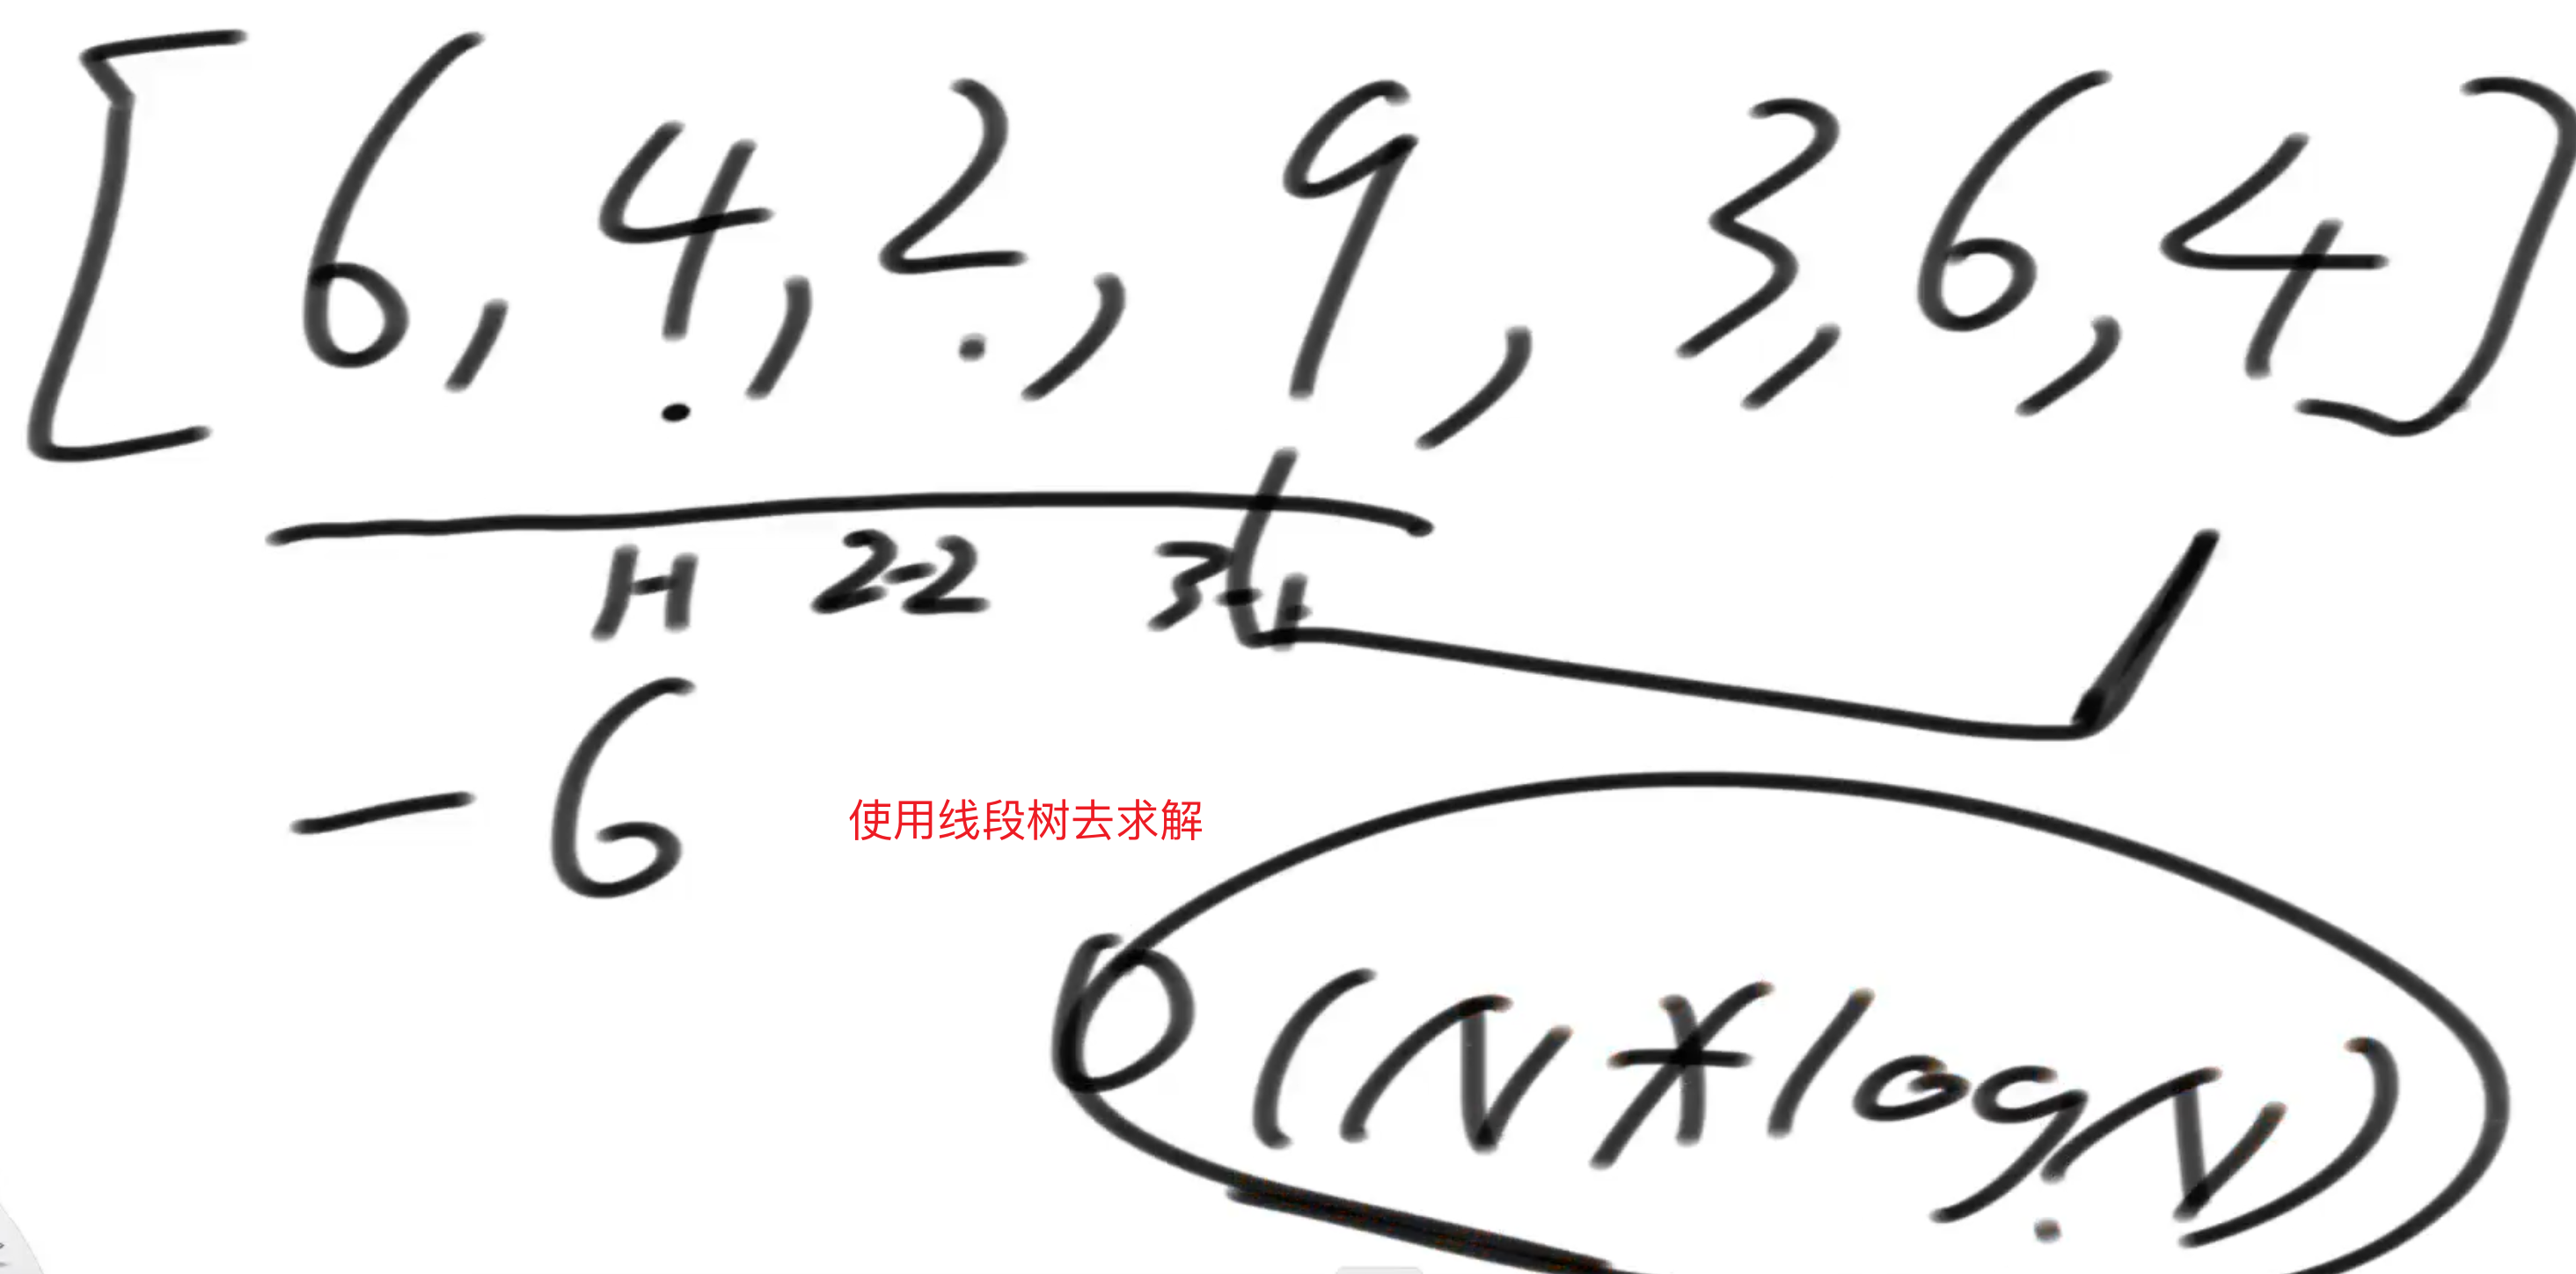 [6,4,2,9,3,6,4]
1-1 2-2 3-
-6
使用线段树去求解
O(N*logN)